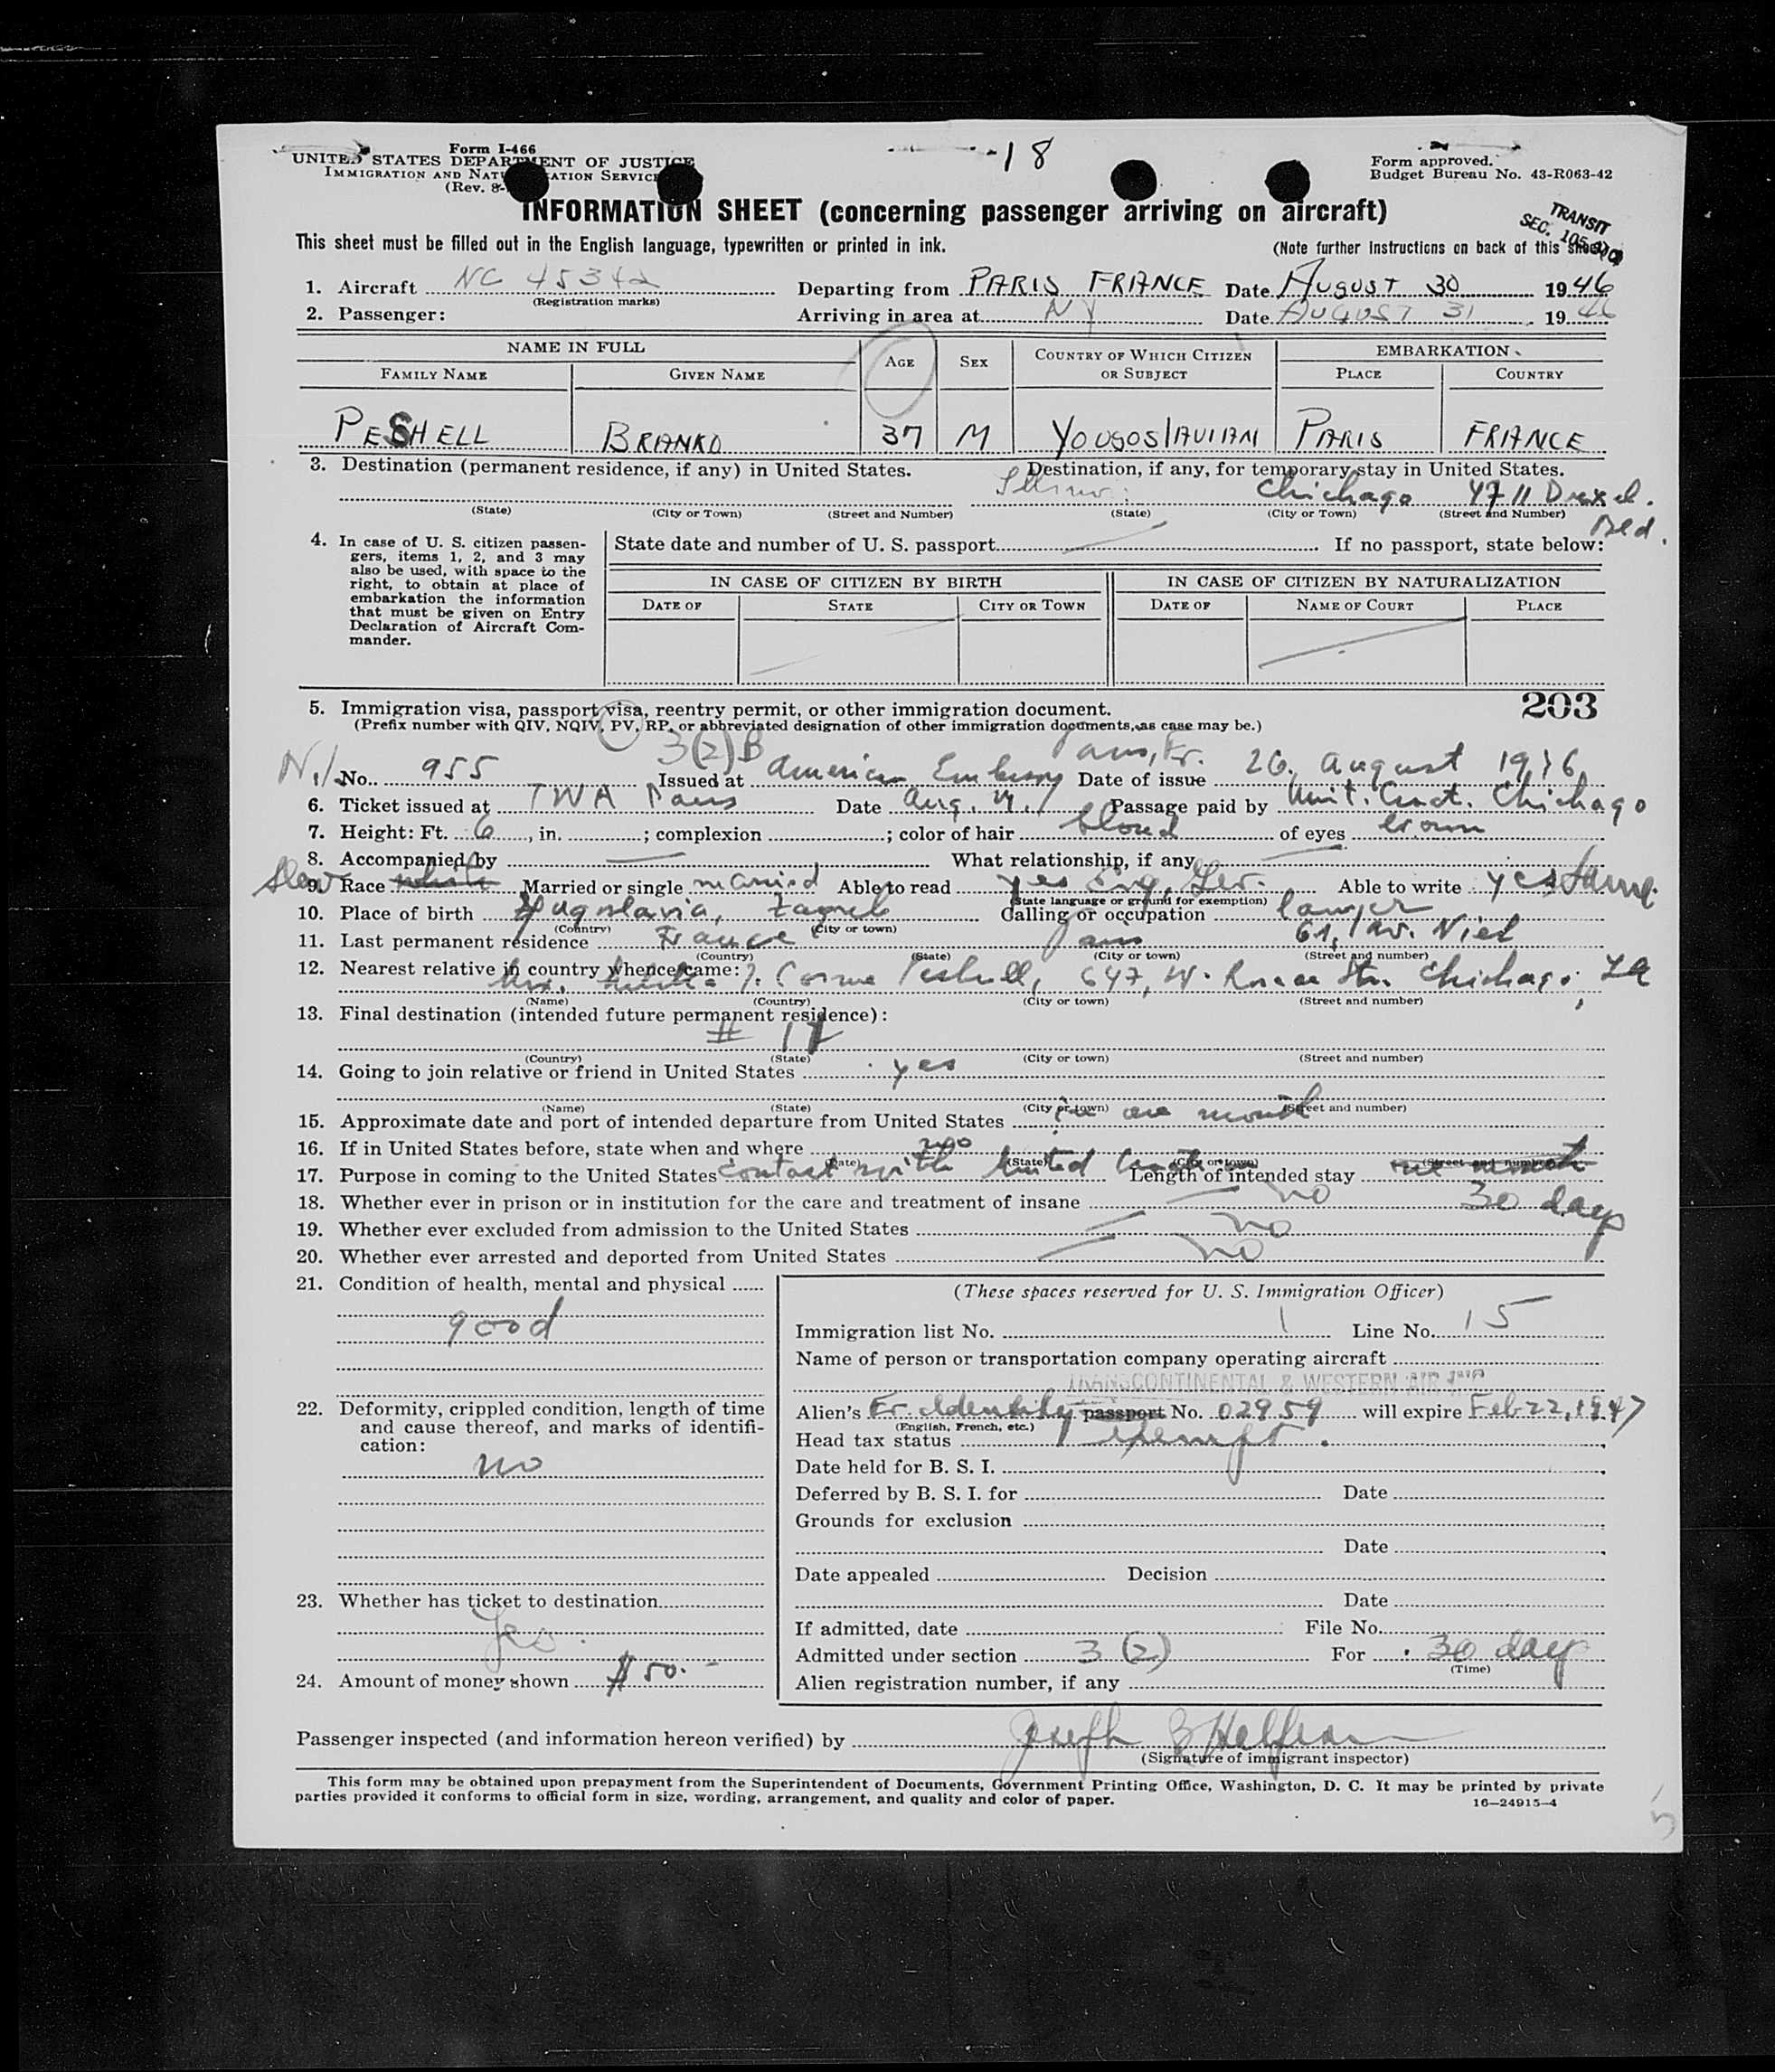 -18
Form I-466
UNITED STATES DEPARTMENT OF JUSTICE
IMMIGRATION AND NATURALIZATION SERVICE
(Rev. 8-
Form approved.
Budget Bureau No. 43-R063-42
INFORMATION SHEET (concerning passenger arriving on aircraft)
TRANSIT
SEC. 105.3
This sheet must be filled out in the English language, typewritten or printed in ink. (Note further instructions on back of this sheet)
1. Aircraft NC 45342 Departing from PARIS FRANCE Date AUGUST 30 1946
(Registration marks)
2. Passenger: Arriving in area at NY Date AUGUST 31 1946
NAME IN FULL AGE SEX COUNTRY OF WHICH CITIZEN OR SUBJECT EMBARKATION
FAMILY NAME GIVEN NAME PLACE COUNTRY
PESHELL BRANKO 37 M YOUGOSLAVIAN PARIS FRANCE
3. Destination (permanent residence, if any) in United States. Destination, if any, for temporary stay in United States.
Chichago 4711 Drexel.
(State) (City or Town) (Street and Number) (State) (City or Town) (Street and Number)
Bld.
4. In case of U. S. citizen passengers, items 1, 2, and 3 may also be used, with space to the right, to obtain at place of embarkation the information that must be given on Entry Declaration of Aircraft Commander.
State date and number of U. S. passport If no passport, state below:
IN CASE OF CITIZEN BY BIRTH IN CASE OF CITIZEN BY NATURALIZATION
DATE OF STATE CITY OR TOWN DATE OF NAME OF COURT PLACE
203
5. Immigration visa, passport visa, reentry permit, or other immigration document.
(Prefix number with QIV, NQIV, PV, RP, or abbreviated designation of other immigration documents, as case may be.)
3(2)B Paris, Fr.
No. 955 Issued at American Embassy Date of issue 26. August 1946
6. Ticket issued at TWA Paris Date Aug. Passage paid by Unit. Croat. Chichago
7. Height: Ft. 6, in. ; complexion ; color of hair blond of eyes brown
8. Accompanied by — What relationship, if any —
Slav
9. Race white Married or single married Able to read yes Eng, Ger. Able to write yes same
(State language or ground for exemption)
10. Place of birth Yugoslavia, Zagreb Calling or occupation lawyer
(Country) (City or town)
11. Last permanent residence France Paris 61, Av. Niel
(Country) (State) (City or town) (Street and number)
12. Nearest relative in country whence came:
Peshell, 647, W. Str. Chichago
(Name) (Country) (City or town) (Street and number)
13. Final destination (intended future permanent residence):
# 17
(Country) (State) (City or town) (Street and number)
14. Going to join relative or friend in United States yes
(Name) (State) (City or town) (Street and number)
15. Approximate date and port of intended departure from United States in one month
16. If in United States before, state when and where no
(Date) (State) (City or town) (Street and number)
17. Purpose in coming to the United States contact with United Croat. Length of intended stay one month
30 days
18. Whether ever in prison or in institution for the care and treatment of insane — no
19. Whether ever excluded from admission to the United States — no
20. Whether ever arrested and deported from United States — no
21. Condition of health, mental and physical
good
22. Deformity, crippled condition, length of time and cause thereof, and marks of identification:
no
23. Whether has ticket to destination
Yes.
24. Amount of money shown $ 50.-
(These spaces reserved for U. S. Immigration Officer)
Immigration list No. 1 Line No. 15
Name of person or transportation company operating aircraft
TRANSCONTINENTAL & WESTERN AIR INC
Alien's Fr. Identity passport No. 02959 will expire Feb 22, 1947
(English, French, etc.)
Head tax status exempt.
Date held for B. S. I.
Deferred by B. S. I. for Date
Grounds for exclusion
Date
Date appealed Decision
Date
If admitted, date File No.
Admitted under section 3(2) For 30 days
(Time)
Alien registration number, if any
Passenger inspected (and information hereon verified) by Joseph
(Signature of immigrant inspector)
This form may be obtained upon prepayment from the Superintendent of Documents, Government Printing Office, Washington, D. C. It may be printed by private
parties provided it conforms to official form in size, wording, arrangement, and quality and color of paper.
16—24915-4